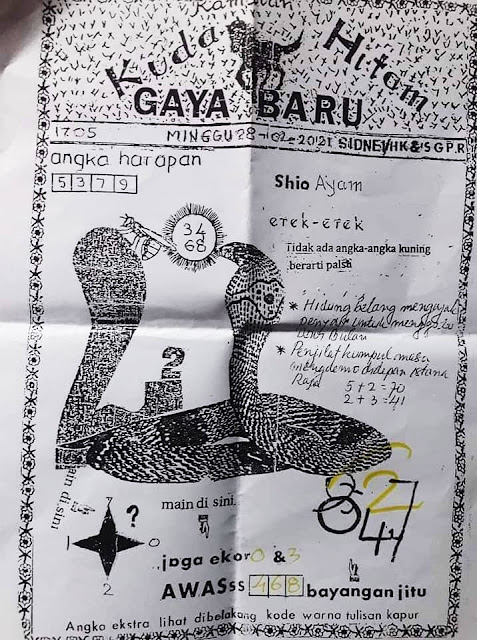 Kuda Hitam
GAYA BARU
1705
MINGGU 28-02-2021 SIDNEY/HK & SGP.R
angka harapan
5 3 7 9
Shio Ayam
34
68
erek-erek
Tidak ada angka-angka kuning
berarti palsu
* Hidung belang mengajak
* Penjilat kumpul masa
mengdemo didepan istana
Raja
5 + 2 = 70
2 + 3 = 41
2
main di sini
main di sini.
?
1
0
2
847
62
jaga ekor 0 & 3
AWASss 4 6 8 bayangan jitu
Angka ekstra lihat dibelakang kode warna tulisan kapur